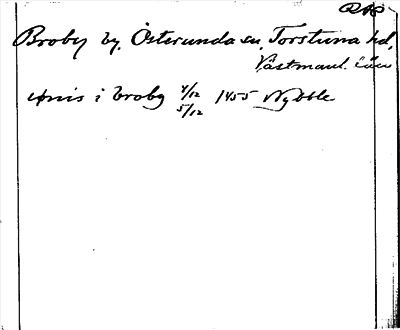 RAP
Broby by, Österunda sn, Torstuna hd,
Västmanl. län
unis i broby 4/12 1455 Nybble
5/12